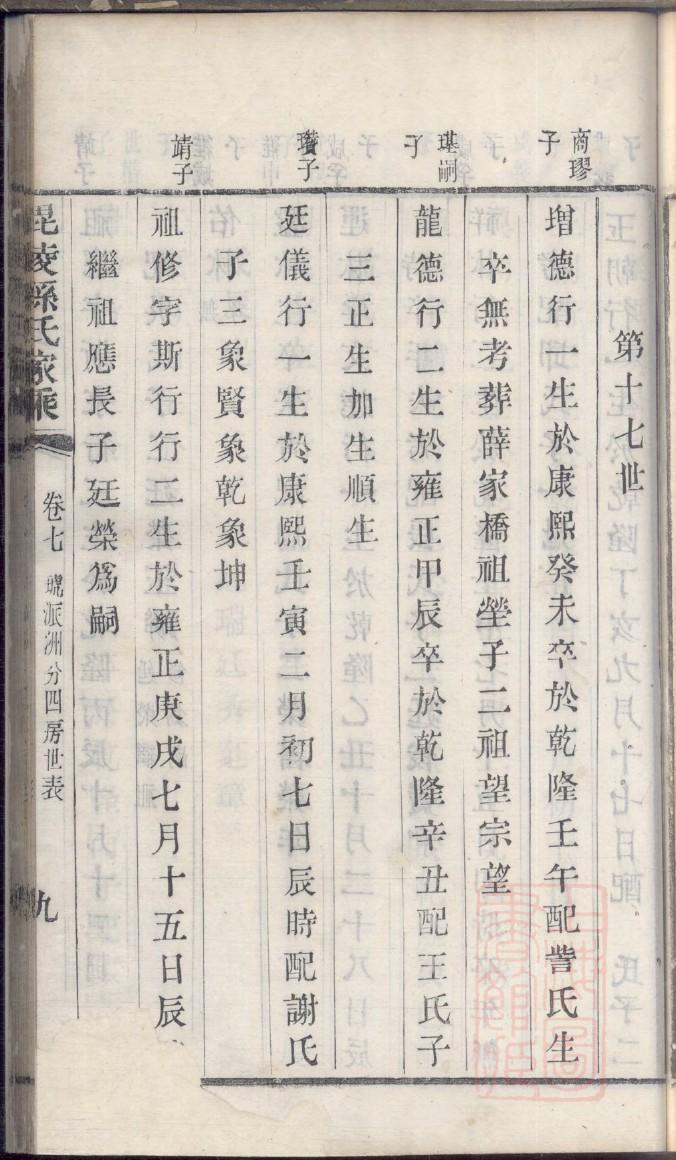 第十七世
商璆子
增德行一生於康熙癸未卒於乾隆壬午配訾氏生
卒無考葬薛家橋祖塋子二祖望宗望
璂嗣子
龍德行二生於雍正甲辰卒於乾隆辛丑配王氏子
三正生加生順生
瓚子
廷儀行一生於康熙壬寅二月初七日辰時配謝氏
子三象賢象乾象坤
靖子
祖修字斯行行二生於雍正庚戌七月十五日辰
繼祖應長子廷榮爲嗣
毘陵孫氏家乘
卷七
派洲分四房世表
九